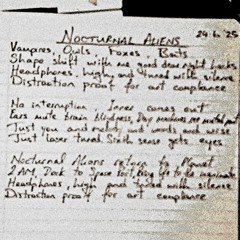 NOCTURNAL ALIENS 24.6.25
Vampires, Owls, Foxes, Bats
Shape shift with me good dear night
Headphones, high and tuned with silence
Distraction proof for art compliance
No interruption, Inner comes out
Ears mute brain blindness, Day
Just you and melody and words and wise
Just laser tuned Sixth sense gets eyes
Nocturnal Aliens return to Planet
2 AM, Back to Space
Headphones, high and tuned with silence
Distraction proof for art compliance